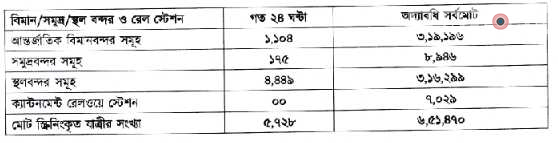 বিমান/সমুদ্র/স্থল বন্দর ও রেল স্টেশন গত ২৪ ঘন্টা অদ্যাবধি সর্বমোট
আন্তর্জাতিক বিমানবন্দর সমূহ ১,১০৪ ৩,১৯,১৯৬
সমুদ্রবন্দর সমূহ ১৭৫ ৮,৯৪৬
স্থলবন্দর সমূহ ৪,৪৪৯ ৩,১৬,২৯৯
ক্যান্টনমেন্ট রেলওয়ে স্টেশন ০০ ৭,০২৯
মোট স্ক্রিনিংকৃত যাত্রীর সংখ্যা ৫,৭২৮ ৬,৫১,৪৭০